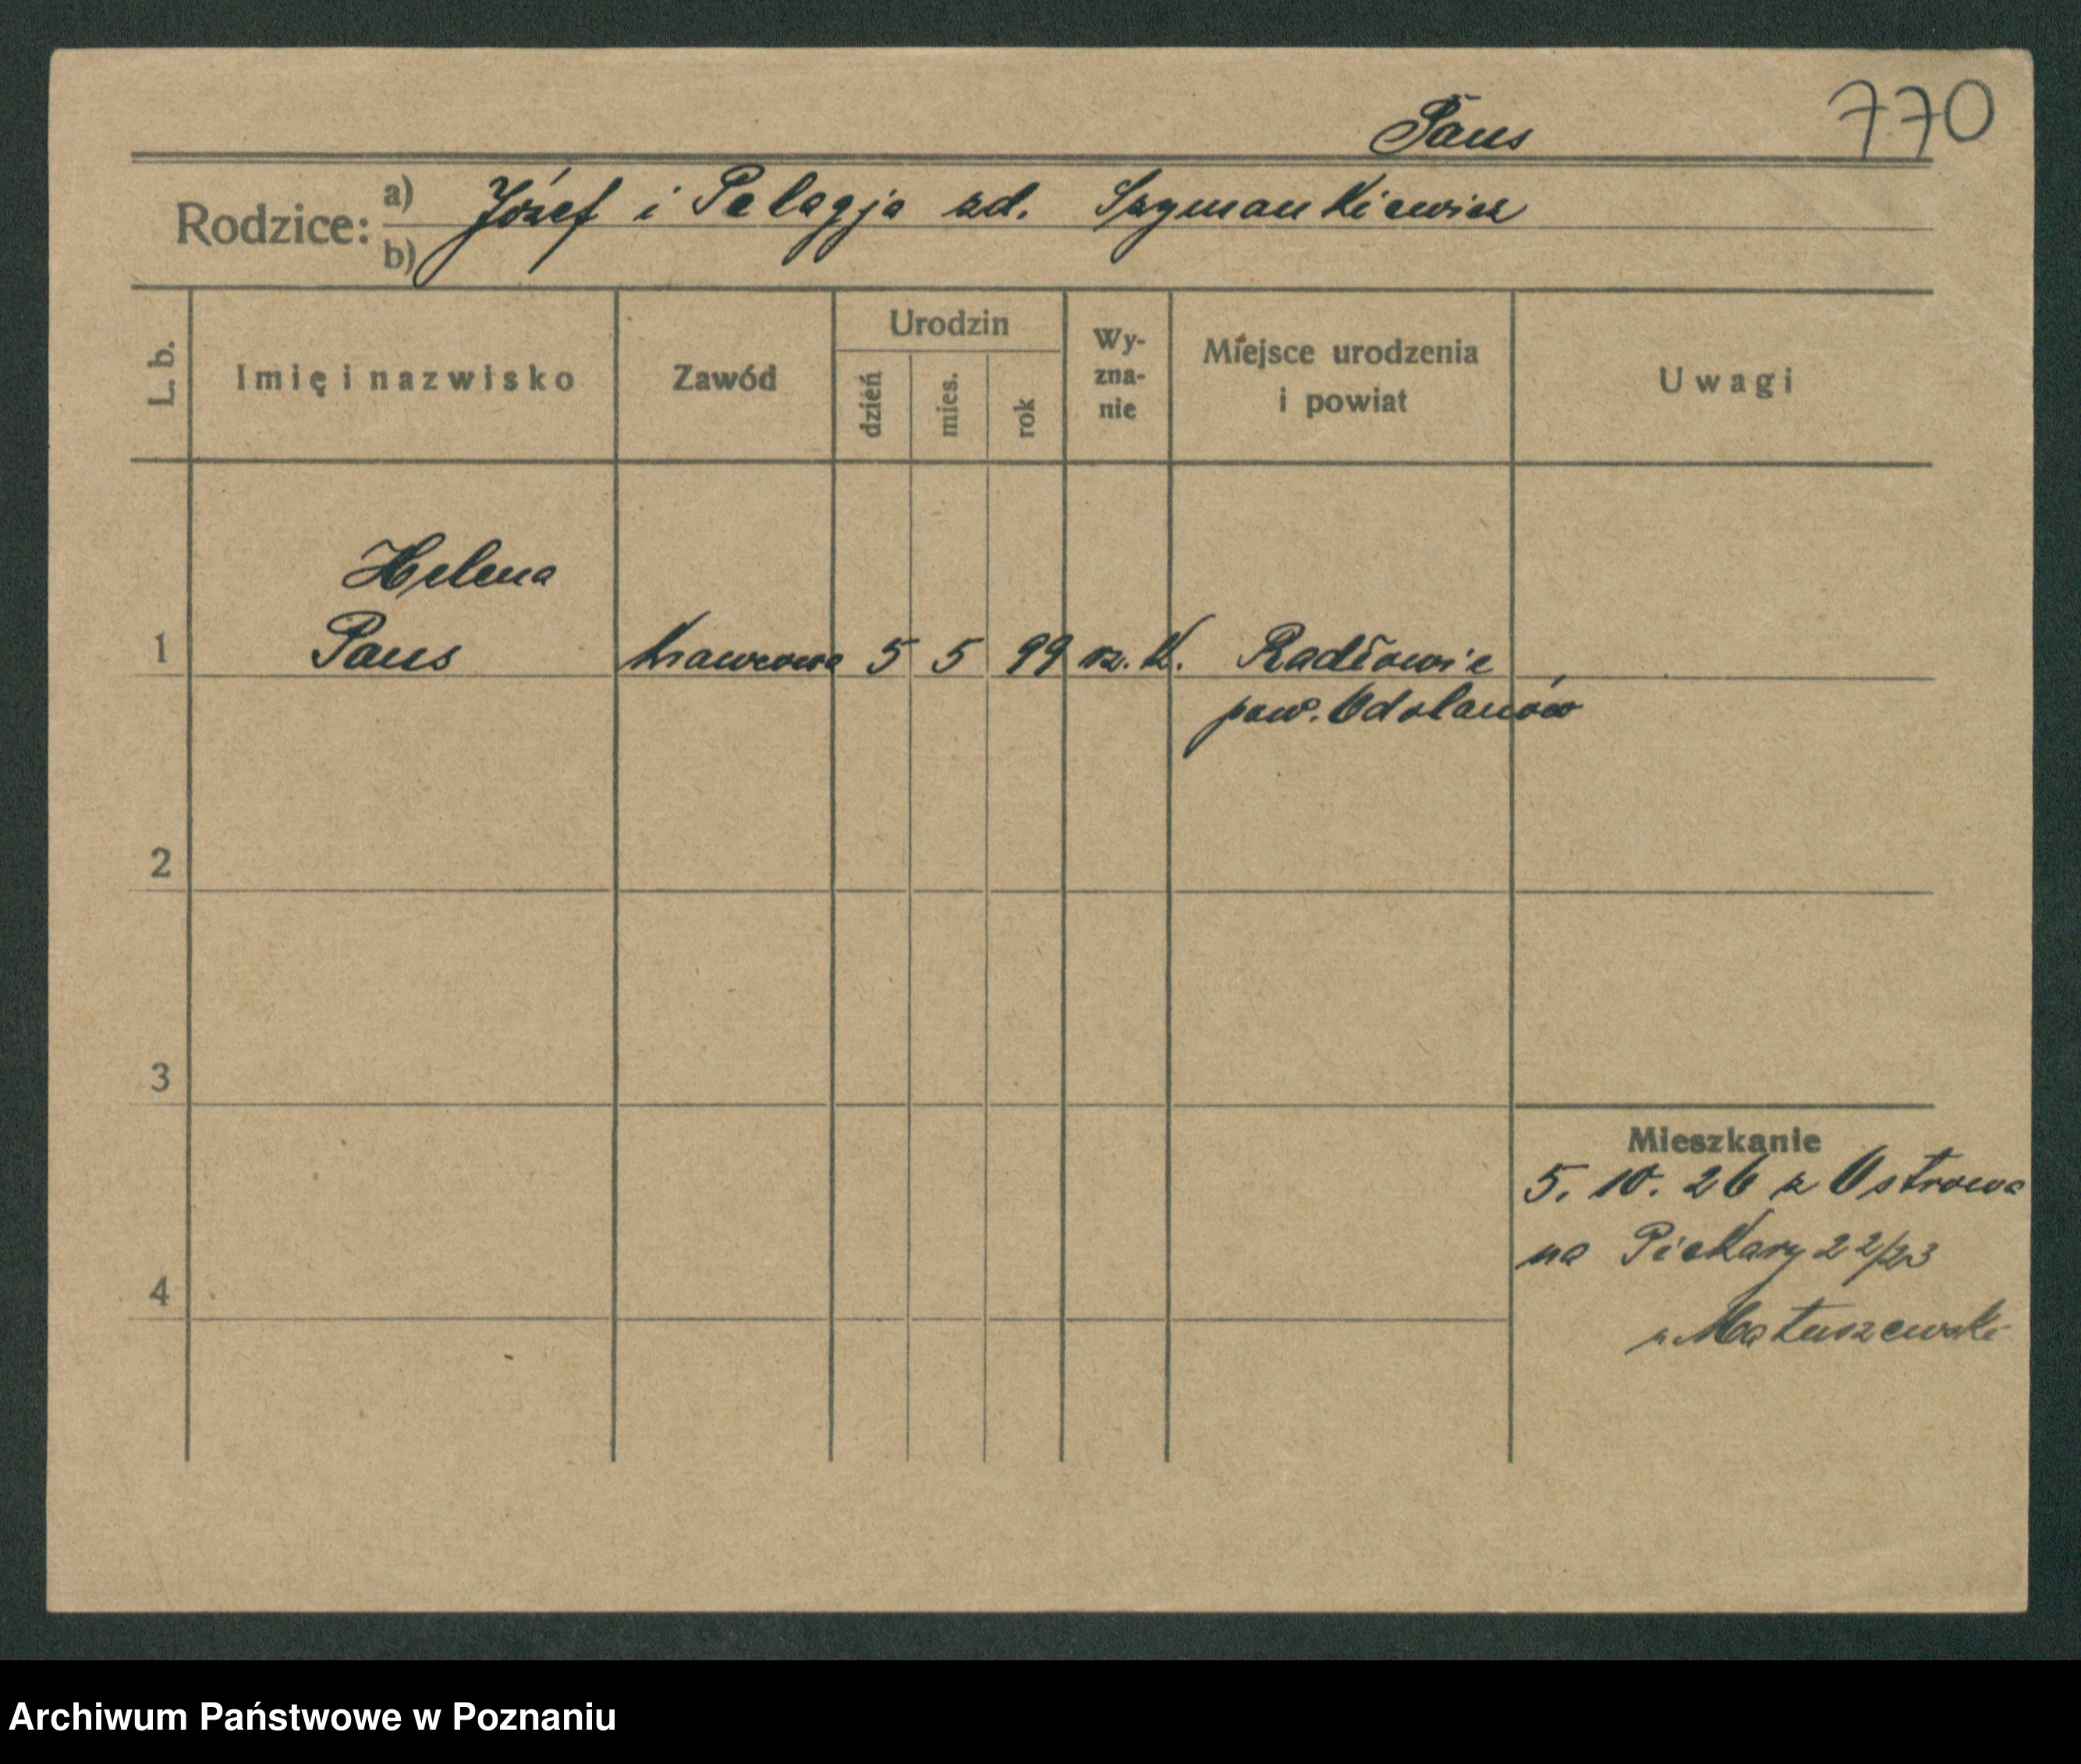 770
Paus
Rodzice: a) Józef i Pelagja zd. Szymankiewicz
b)
L. b. Imię i nazwisko Zawód Urodzin dzień mies. rok Wy-zna-nie Miejsce urodzenia i powiat Uwagi
Helena
1 Paus krawcowa 5 5 99 rz. k. Radłowie
pow. Odolanów
2
3
Mieszkanie
5. 10. 26 z Ostrowa
na Piekary 22/23
4
Matuszewski
Archiwum Państwowe w Poznaniu